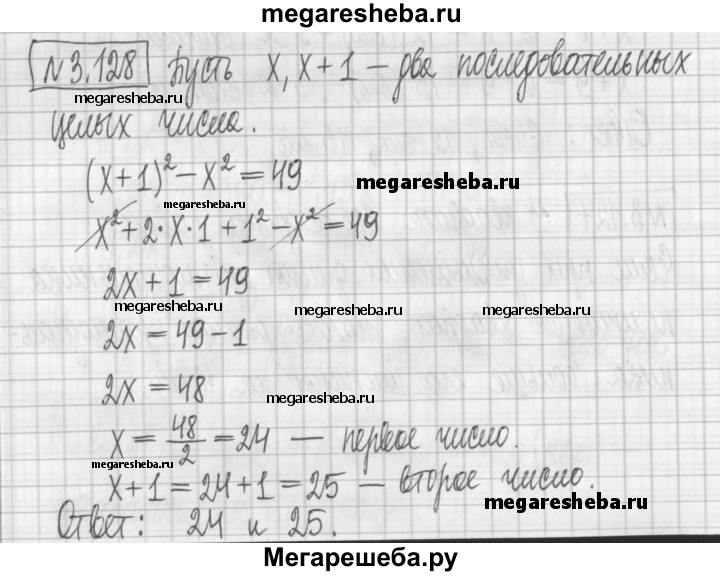 megaresheba.ru
N 3.128 Пусть x, x+1 – два последовательных
megaresheba.ru
целых числа.
(x+1)² – x² = 49
megaresheba.ru
x² + 2·x·1 + 1² – x² = 49
2x + 1 = 49
megaresheba.ru megaresheba.ru megaresheba.ru
2x = 49 – 1
2x = 48
megaresheba.ru
x = 48/2 = 24 — первое число.
megaresheba.ru
x + 1 = 24 + 1 = 25 — второе число.
megaresheba.ru
Ответ: 24 и 25.
Мегарешеба.ру